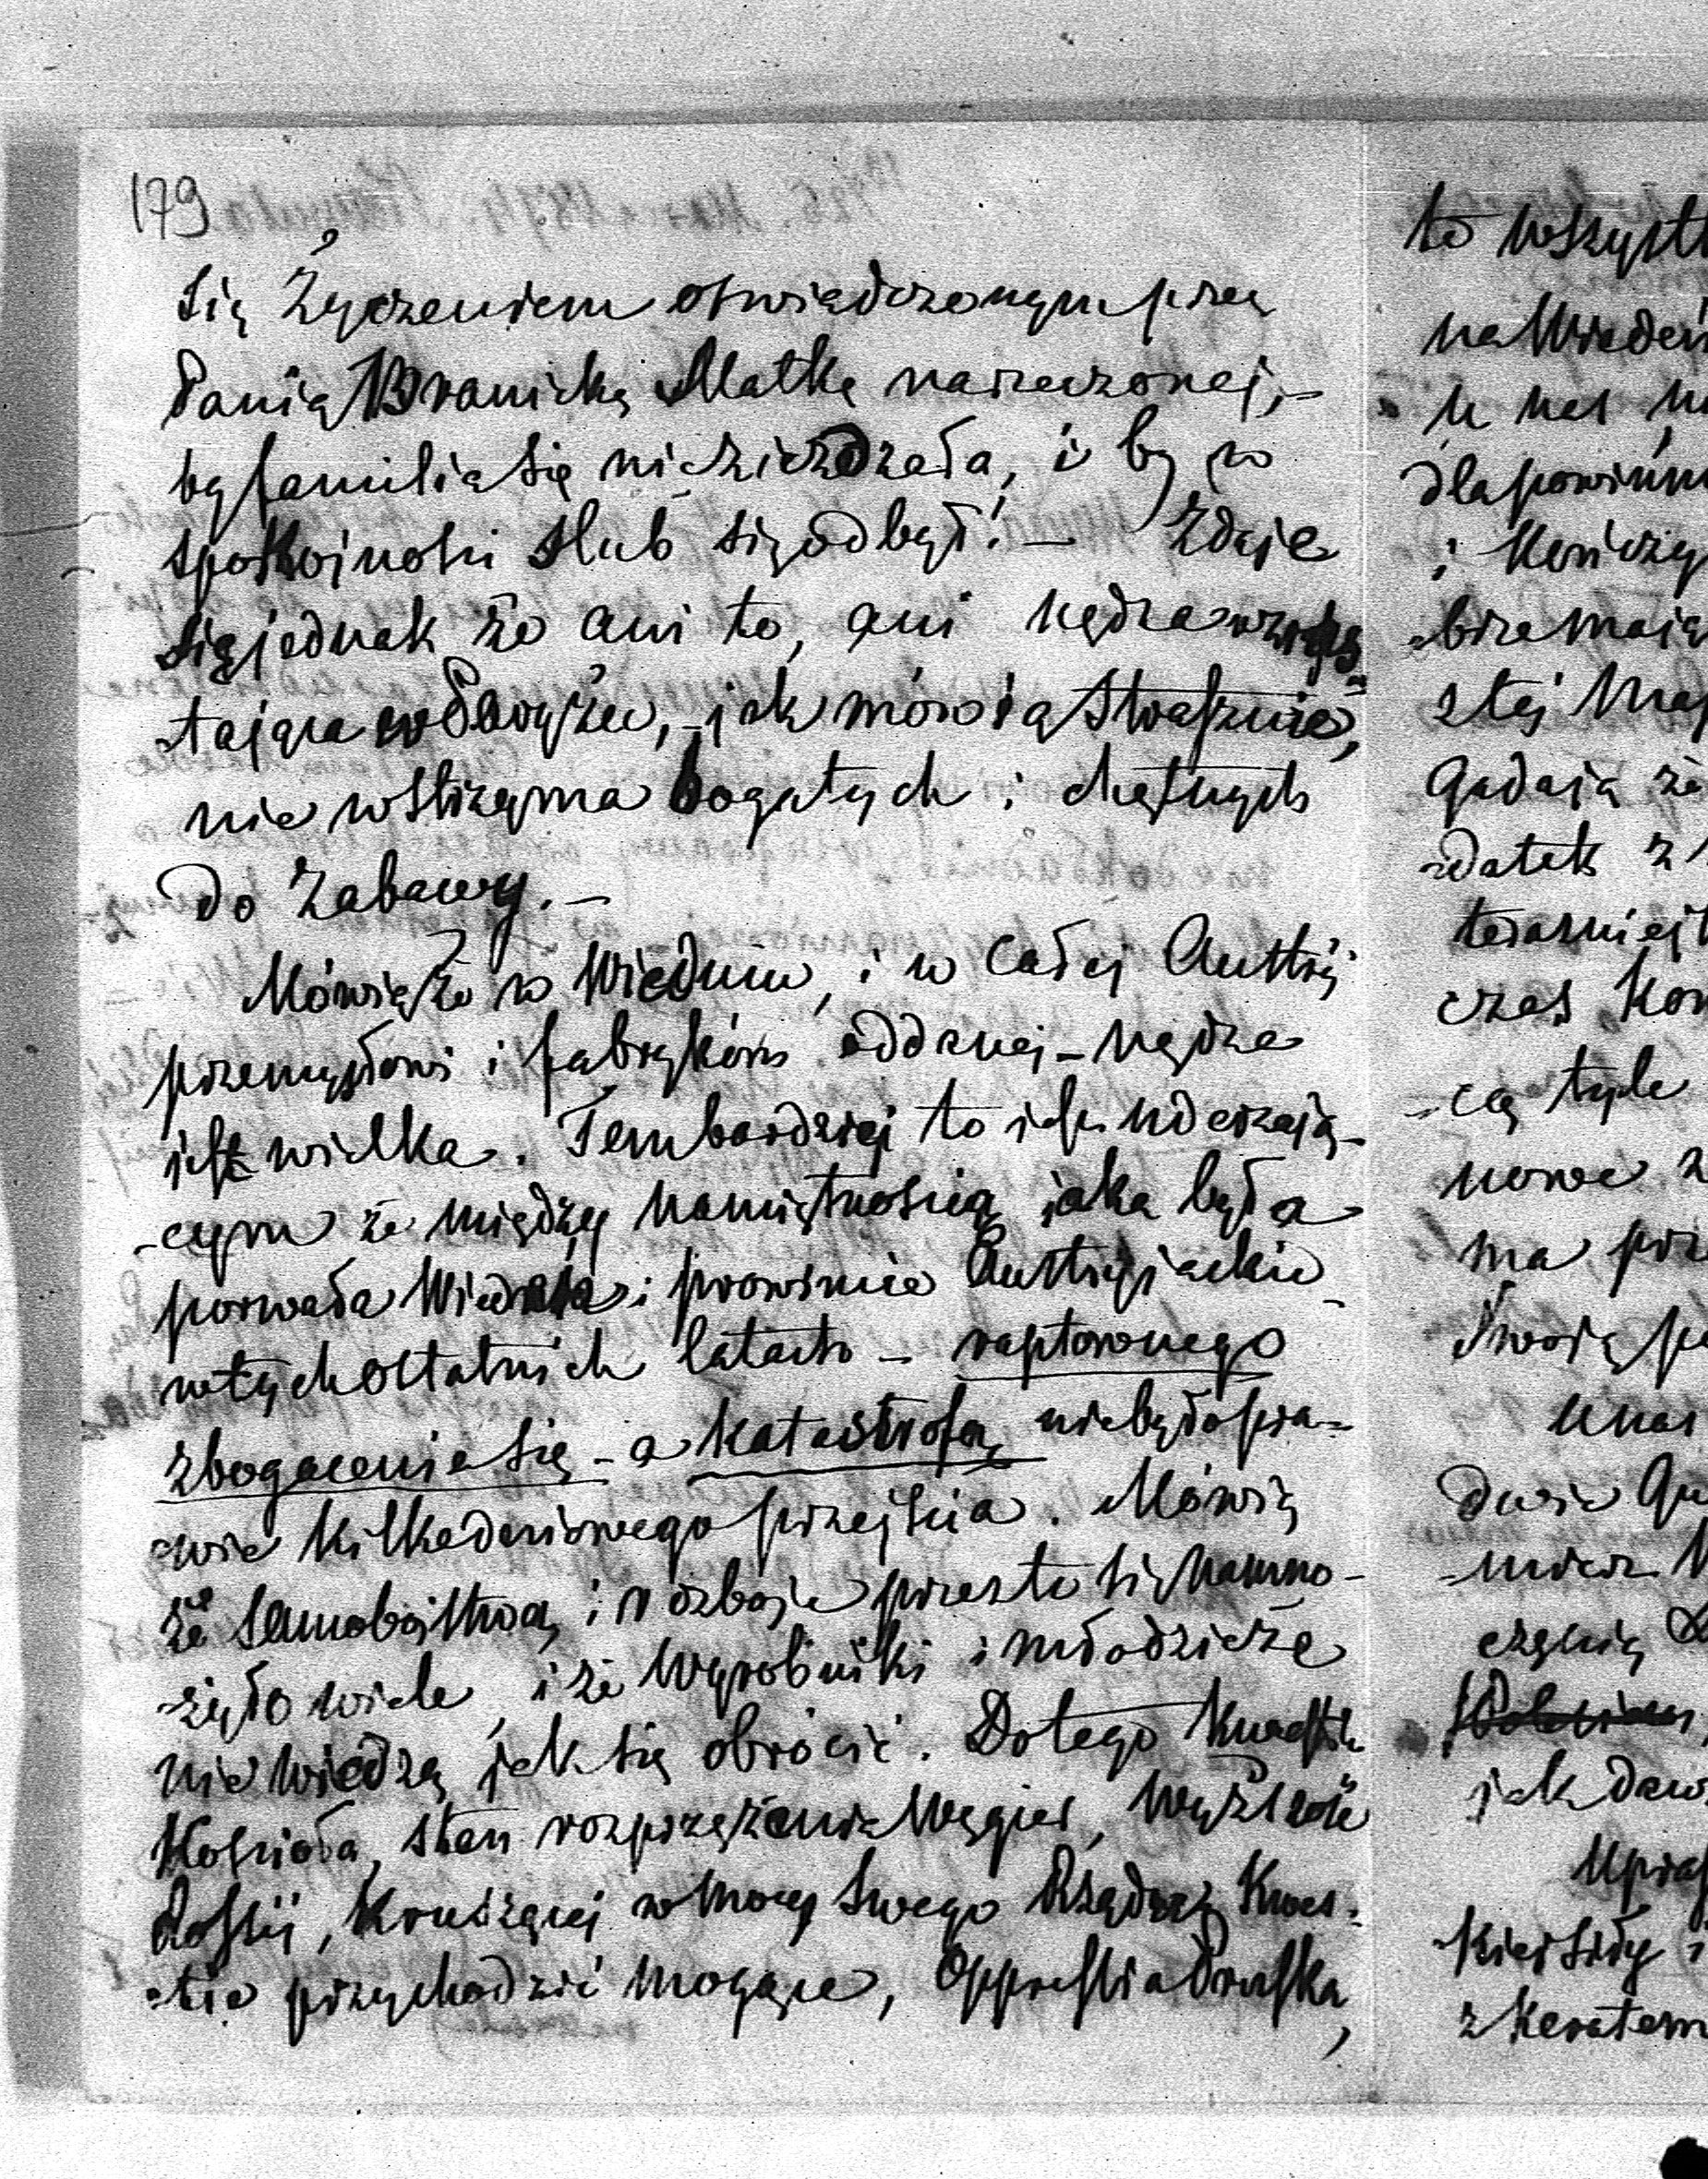 179
się życzeniem oświadczonym przez
Panią Branicką Matkę narzeczonej,-
by familia się nie zjeżdżała, i by w
spokojności ślub się odbył! - Zdaje
się jednak że ani to, ani nędza
-tająca w Paryżu, - jak mówią strasznie,
nie wstrzyma bogatych i chętnych
do zabawy. -
Mówią że w Wiedniu, i w całej Austrij
przemysłowi i fabryków oddanej - nędza
jest wielka. Tembardziej to jest uderzają-
-cym że między namiętnością jaka była
porwała Wiedeń i prowincie Austryjackie
w tych ostatnich latach - raptownego
zbogacenia się - a katastrofą nie było pra-
-wie kilkodniowego przejścia. Mówią
że samobójstwa i rozboje przez to się namno-
-żyło wiele, i że wyrobniki i młodzieże
nie wiedzą jak się obrócić. Do tego kwestia
Kościoła, stan rozprzężenia Węgier,
Rossij, kruszącej w mocy swego Rządu Kwes-
-tie przychodzić mogące, Oppressia Pruska,
to wszyst
na Wiedeń
u nas
dla powinn
i kończy
-bize mają
z tej
Gadają że
-datek z
teraźniej
czas
-cą tyle
nowe
ma prz
Swoją
unas
dwie
czynią
jak daw
Upra
z Keratem